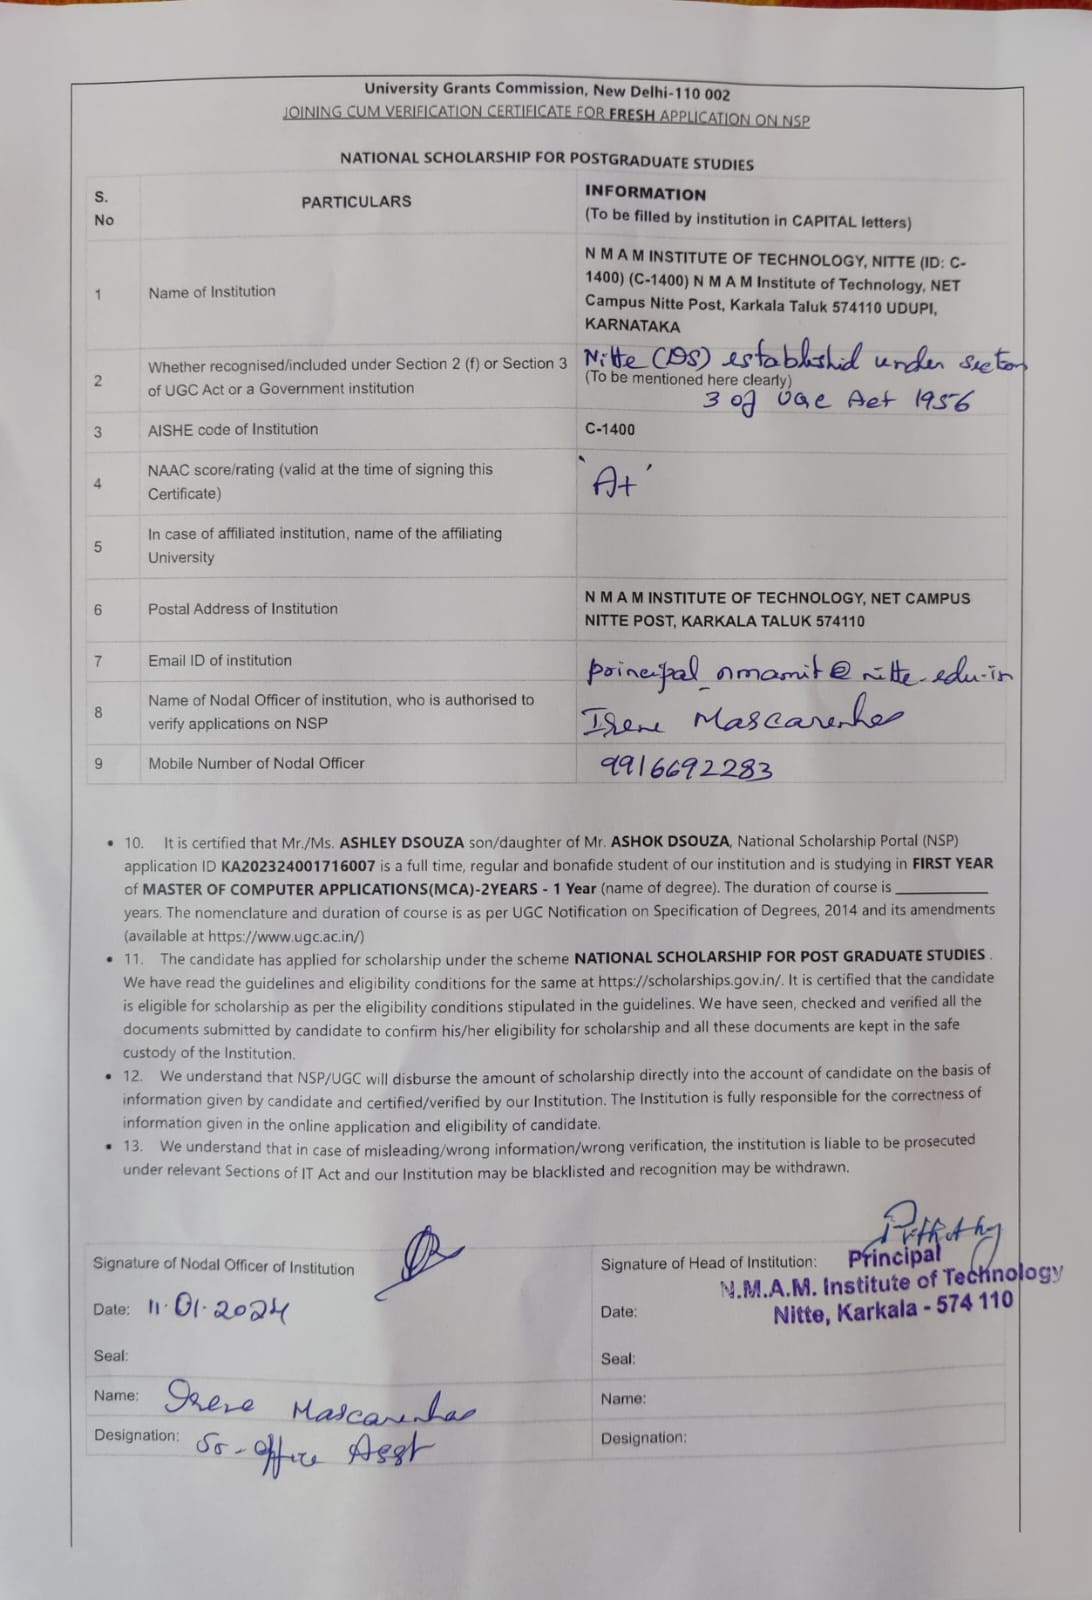 University Grants Commission, New Delhi-110 002
JOINING CUM VERIFICATION CERTIFICATE FOR FRESH APPLICATION ON NSP
NATIONAL SCHOLARSHIP FOR POSTGRADUATE STUDIES
S.
No
PARTICULARS
INFORMATION
(To be filled by institution in CAPITAL letters)
1
Name of Institution
N M A M INSTITUTE OF TECHNOLOGY, NITTE (ID: C-
1400) (C-1400) N M A M Institute of Technology, NET
Campus Nitte Post, Karkala Taluk 574110 UDUPI,
KARNATAKA
2
Whether recognised/included under Section 2 (f) or Section 3
of UGC Act or a Government institution
Nitte (DS) established under section
(To be mentioned here clearly)
3 of UGC Act 1956
3
AISHE code of Institution
C-1400
4
NAAC score/rating (valid at the time of signing this
Certificate)
'A+'
5
In case of affiliated institution, name of the affiliating
University
6
Postal Address of Institution
N M A M INSTITUTE OF TECHNOLOGY, NET CAMPUS
NITTE POST, KARKALA TALUK 574110
7
Email ID of institution
principal_nmamit@nitte.edu.in
8
Name of Nodal Officer of institution, who is authorised to
verify applications on NSP
Irene Mascarenhas
9
Mobile Number of Nodal Officer
9916692283
• 10. It is certified that Mr./Ms. ASHLEY DSOUZA son/daughter of Mr. ASHOK DSOUZA, National Scholarship Portal (NSP)
application ID KA202324001716007 is a full time, regular and bonafide student of our institution and is studying in FIRST YEAR
of MASTER OF COMPUTER APPLICATIONS(MCA)-2YEARS - 1 Year (name of degree). The duration of course is ____________
years. The nomenclature and duration of course is as per UGC Notification on Specification of Degrees, 2014 and its amendments
(available at https://www.ugc.ac.in/)
• 11. The candidate has applied for scholarship under the scheme NATIONAL SCHOLARSHIP FOR POST GRADUATE STUDIES .
We have read the guidelines and eligibility conditions for the same at https://scholarships.gov.in/. It is certified that the candidate
is eligible for scholarship as per the eligibility conditions stipulated in the guidelines. We have seen, checked and verified all the
documents submitted by candidate to confirm his/her eligibility for scholarship and all these documents are kept in the safe
custody of the Institution.
• 12. We understand that NSP/UGC will disburse the amount of scholarship directly into the account of candidate on the basis of
information given by candidate and certified/verified by our Institution. The Institution is fully responsible for the correctness of
information given in the online application and eligibility of candidate.
• 13. We understand that in case of misleading/wrong information/wrong verification, the institution is liable to be prosecuted
under relevant Sections of IT Act and our Institution may be blacklisted and recognition may be withdrawn.
Signature of Nodal Officer of Institution
Date: 11.01.2024
Seal:
Name: Irene Mascarenhas
Designation: Sr-Office Asst
Signature of Head of Institution:
Principal
N.M.A.M. Institute of Technology
Nitte, Karkala - 574 110
Date:
Seal:
Name:
Designation: